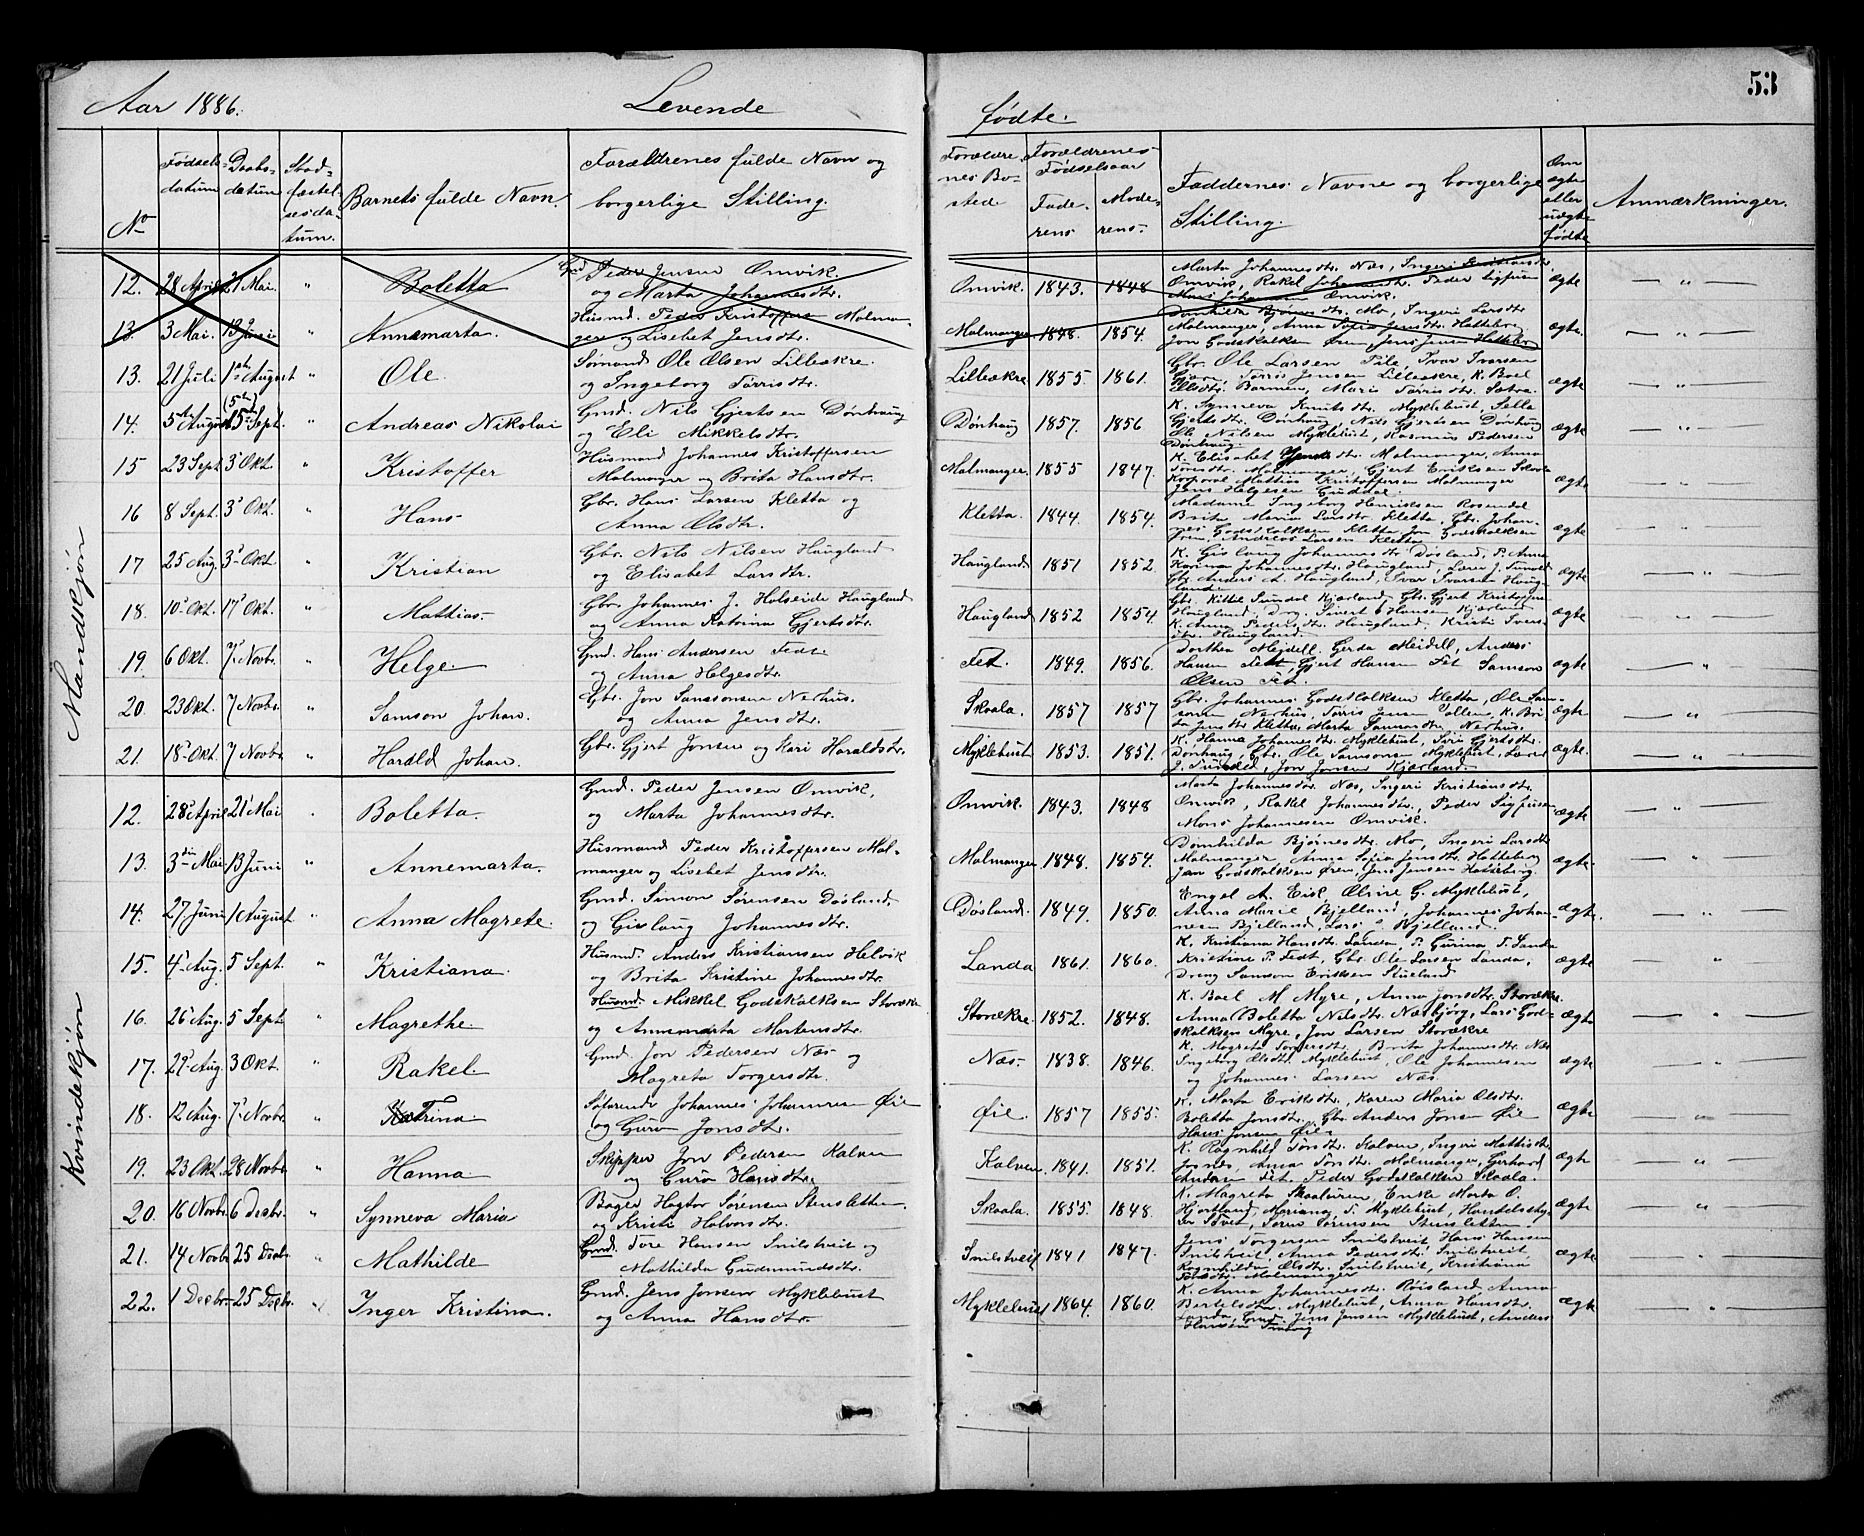 53
Aar 1886. Levende fødte.
No
Fødsels-datum
Daabs-datum
Stad-fæstel-sesda-tum.
Barnets fulde Navn.
Forældrenes fulde Navn og borgerlige Stilling.
Forældre-nes Bo-sted
Forældrenes Fødselsaar
Fade-rens
Mode-rens
Faddernes Navne og borgerlige Stilling.
Om ægte eller uægte fødte
Anmærkninger.
Mandkjøn
12. 28 April 21 Mai. " Boletta Gmd. Peder Jensen Omvik. og Marta Johannesdtr. Omvik. 1843. 1848 Marta Johannesdtr. Næs, Ingeri Kristiansdtr. Omvik, Rakel Johannesdtr. Peder Sigfusen Mons Johannesen Omvik. ægte
13. 3 Mai. 13 Juni " Annamarta. Husmd. Peder Kristoffers. Malmanger og Lisebet Jensdtr. Malmanger 1848. 1854. Domhilda Bjørnesdtr. Mo, Ingeri Larsdtr Malmanger, Anna Sofia Jensdtr. Hatteberg Jon Godskalksen Øren, Jens Jensen Hatteberg ægte.
13. 21 Juli 1ste August " Ole Sømand Ole Olsen Lilleækre. og Ingeborg Tørrisdtr. Lilleækre 1855. 1861. Gbr. Ole Larsen Ivar Ivarsen Tørris Jensen Lilleækre, K. Boel Olsdtr. Maris Tørrisdtr. ægte
14. 5te August (5te) 15de Sept. " Andreas Nikolai Gmd. Nils Gjertsen Dønhaug og Eli Mikkelsdtr. Dønhaug 1857. 1856 K. Synneva Knutsdtr. Myklebust, Sella Gjertsdtr. Dønhaug, Nils Gjertsen Dønhaug Ole Nilsen Myklebust, Rasmus Pedersen Dønhaug. ægte
15 23 Sept 3 Okt " Kristoffer Husmand Johannes Kristoffersen Malmanger og Brita Hansdtr. Malmanger. 1855 1847. K. Elisabet Jensdtr. Malmanger, Anna Malmanger, Gjert Eriksen Korporal Mattias Kristoffersen Malmanger Jens Helgesen Guddal. ægte
16 8 Sept. 3 Okt. " Hans Gbr. Hans Larsen Kletta og Anna Olsdtr. Kletta. 1844. 1854. Madame Ingeborg Henriksen Rosendal Brita Maria Larsdtr. Kletta, Gbr. Johannes Godskalksen Kletta, Jon Godskalksen Øren, Andreas Larsen Kletta ægte
17 25 Aug. 3 Okt. " Kristian Gbr. Nils Nilsen Haugland og Elisabet Larsdtr. Haugland 1851 1852 K. Gislaug Johannesdtr. Døsland, P. Anna Karina Johannesdtr. Haugland, Lærer J. Tunold Gbr. Anders A. Haugland, Ivar Ivarsen Haugland. ægte
18. 10 Okt. 17 Okt. " Mattias. Gbr. Johannes J. Halseide Haugland og Anna Katrina Gjertsdtr. Haugland 1852 1854. Gbr. Kittil Sundal Kjærland, Gbr. Gjert Kristoffersen Haugland, Drg. Sivert Hansen Kjærland K. Anna Pedersdtr. Haugland, Kristi Iversdtr. Haugland. ægte
19. 6 Okt. 7 Novbr. " Helge. Gmd. Hans Andersen Fedt og Anna Helgesdtr. Fet. 1849. 1856. Dorthea Mejdell, Gerda Meidell, Anders Hansen Fett, Gjert Hansen Fet Samson Olsen Fet. ægte
20. 23 Okt. 7 Novbr. " Samson Johan. Gbr. Jon Samsonsen Nerhus. og Anna Jensdtr. Skaala. 1857 1857 Gbr. Johannes Godskalksen Kletta, Ole Samsonsen Nerhus, Tørris Jensen K. Brita Jensdtr Kletta, Marta Samsonsdtr. Nerhus. ægte
21. 18 Okt. 7 Novbr. " Harald Johan. Gbr. Gjert Jonsen og Kari Haraldsdtr. Myklebust 1853. 1851. K. Hanna Johannesdtr. Myklebust, Siri Gjertsdtr. Dønhaug, Gbr. Ole Samsonsen Myklebust, Lærer J. Tunold, Jon Jonsen Kjærland. ægte.
Kvindekjøn
12. 28 April 21 Mai " Boletta. Gmd. Peder Jensen Omvik, og Marta Johannesdtr. Omvik. 1843. 1848 Marta Johannesdtr. Næs, Ingeri Kristiansdtr. Omvik, Rakel Johannesdtr., Peder Sigfusen Mons Johannesen Omvik. ægte
13. 3die Mai. 13 Juni " Annemarta. Husmand Peder Kristoffersen Malmanger og Lisebet Jensdtr. Malmanger 1848. 1854. Domhilda Bjørnesdtr. Mo, Ingeri Larsdtr Malmanger, Anna Sofia Jensdtr. Hatteberg Jon Godskalksen Øren, Jens Jensen Hatteberg. ægte.
14. 27 Juni 1 August " Anna Magrete. Gmd. Simon Sørensen Døsland og Gislaug Johannesdtr. Døsland. 1849. 1850. Engel A. Eik, Oline G. Myklebust, Anna Marie Bjelland, Johannes Johannesen Bjelland, Lars Bjelland. ægte.
15. 4 Aug. 5 Sept. " Kristiana. Husmd. Anders Kristiansen Helvik og Brita Kristine Johannesdtr. Landa 1861. 1860. K. Kristiana Hansdtr. Landa, P. Gurina T. Landa Kristine P. Fedt, Gbr. Ole Larsen Landa, Dreng Samson Eriksen Stueland. ægte
16. 26 Aug. 5 Sept. " Magrethe. Husmd. Mikkel Godskalksen Storækre og Annemarta Mortensdtr. Storækre. 1852. 1848. K. Boel M. Myre, Anna Jonsdtr. Storækre. Anna Boletta Nilsdtr. Næsbjørg, Lars Godskalksen Myre, Jon Larsen Storækre ægte
17. 29 Aug. 3 Okt. " Rakel Gmd. Jon Pedersen Næs og Magreta Torgersdtr. Næs. 1838. 1846. K. Magreta Torgersdtr., Brita Johannesdtr. Næs Ingeborg Olsdtr. Myklebust, Ole Johannesen og Johannes Larsen Næs. ægte
18. 12 Aug. 7 Novbr. " Katrina. Søfarende Johannes Johannesen Øie og Guro Jonsdtr. Øie. 1857 1855. K. Marta Eriksdtr., Karen Maria Olsdtr. Boletta Jonsdtr., Gbr. Anders Jonsen Øie Hans Jonsen Øie. ægte
19. 23 Okt. 28 Novbr. " Hanna. Skipper Jon Pedersen Kalven og Guro Hansdtr. Kalven. 1841. 1851. K. Ragnhild Jonsdtr. Kalven, Ingeri Mattisdtr. Anna Malmanger, Gerhard Andersen Fet, Peder Godskalksen Skaala. ægte
20. 16 Novbr. 6 Decbr. " Synneva Maria Bager Hagtor Sørensen Stensletten og Kristi Halvorsdtr. Skaala. 1855. 1848. K. Magreta Skaaluren, Enke Marta O. Hjortland, Mariana T. Myklebust, Handelsstyrer Tveit, Søren Sørensen Stensletten ægte
21. 14 Novbr. 25 Decbr. " Mathilde Gmd. Tore Hansen Snilstveit og Mathilda Gudmundsdtr. Snilstveit 1841 1847. Jens Torgersen Snilstveit, Hans Hansen Snilstveit, Anna Pedersdtr. Snilstveit, Ragnhilda Olsdtr. Snilstveit, Kristiana Malmanger ægte
22. 1 Decbr. 25 Decbr. " Inger Kristina. Gmd. Jens Jonsen Myklebust og Anna Hansdtr. Myklebust 1864. 1860. K. Anna Johannesdtr. Røisland, Anna Bertelsdtr. Myklebust, Anna Hansdtr. Landa, Gmd. Jens Jensen Myklebust, Anders Hansen ægte